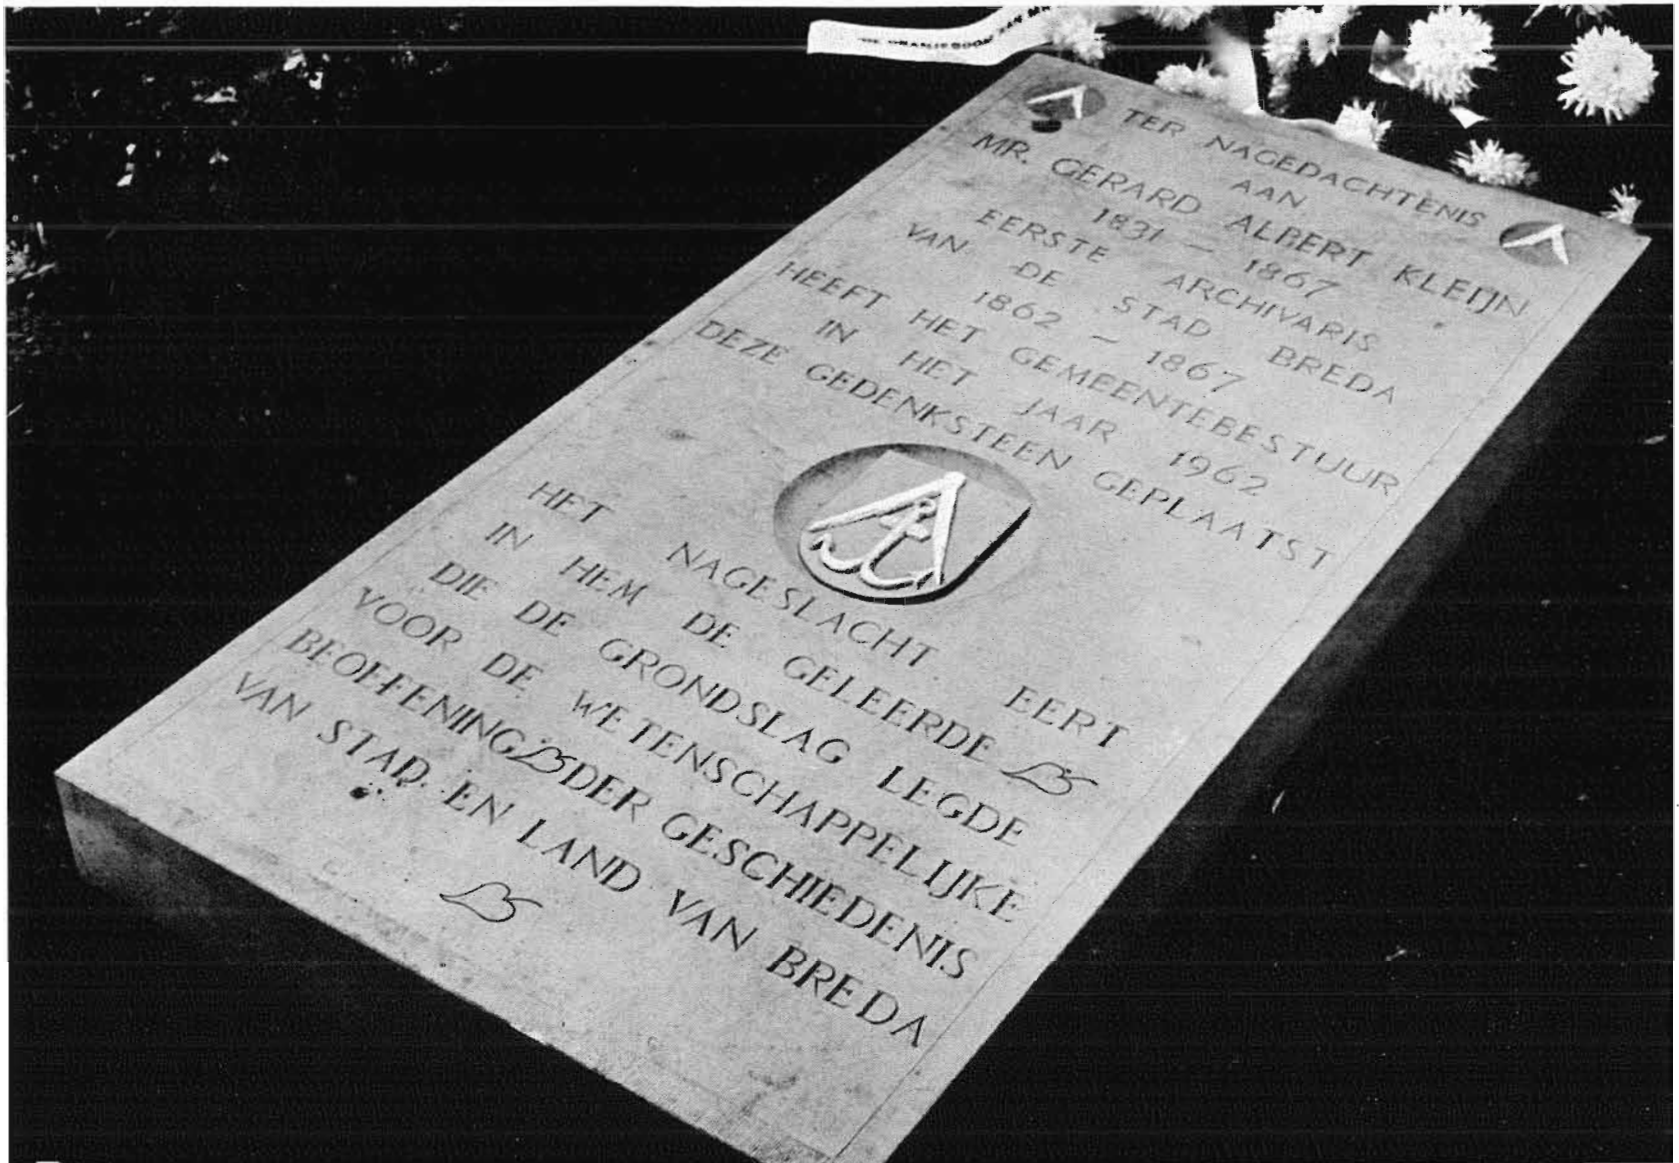 DE ORANJEBOOM VAN MR
TER NAGEDACHTENIS
AAN
MR. GERARD ALBERT KLEIJN
1831 — 1867
EERSTE ARCHIVARIS
VAN DE STAD BREDA
1862 — 1867
HEEFT HET GEMEENTEBESTUUR
IN HET JAAR 1962
DEZE GEDENKSTEEN GEPLAATST
HET NAGESLACHT EERT
IN HEM DE GELEERDE
DIE DE GRONDSLAG LEGDE
VOOR DE WETENSCHAPPELIJKE
BEOEFENING DER GESCHIEDENIS
VAN STAD EN LAND VAN BREDA